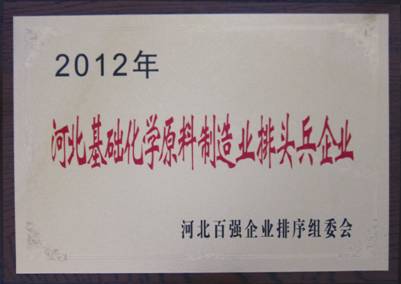 2012年
河北基础化学原料制造业排头兵企业
河北百强企业排序组委会